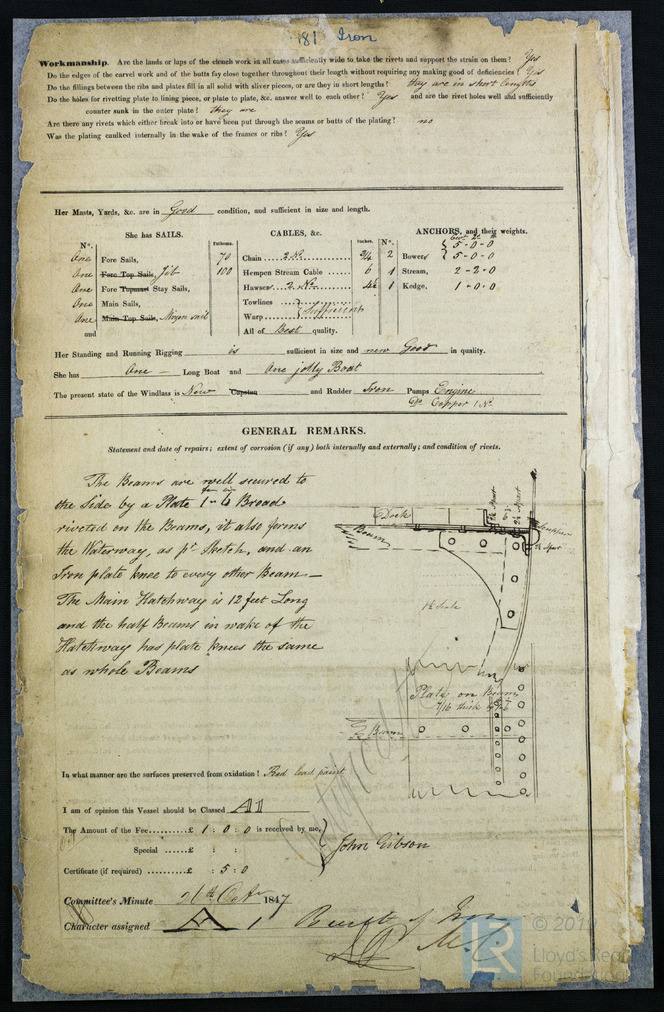 181 Iron
Workmanship. Are the lands or laps of the clench work in all cases sufficiently wide to take the rivets and support the strain on them? Yes
Do the edges of the carvel work and of the butts fay close together throughout their length without requiring any making good of deficiencies? Yes
Do the fillings between the ribs and plates fill in all solid with sliver pieces, or are they in short lengths? they are in short lengths
Do the holes for rivetting plate to lining piece, or plate to plate, &c. answer well to each other? Yes and are the rivet holes well and sufficiently
counter sunk in the outer plate? they are
Are there any rivets which either break into or have been put through the seams or butts of the plating? no
Was the plating caulked internally in the wake of the frames or ribs? Yes
Her Masts, Yards, &c. are in Good condition, and sufficient in size and length.
She has SAILS. CABLES, &c. ANCHORS, and their weights.
N°. Fathoms. Inches. N°.
One Fore Sails, 70 Chain 2 N° 2 Bowers 5-0-0
5-0-0
One Fore Top Sails, Jib 100 Hempen Stream Cable 6 1 Stream, 2-2-0
One Fore Topmast Stay Sails, Hawser 2 N° 4½ 1 Kedge, 1-0-0
One Main Sails, Towlines
One Main Top Sails, Mizen sail Warp Sufficient
and All of Best quality.
Her Standing and Running Rigging is sufficient in size and new Good in quality.
She has One Long Boat and One jolly Boat
The present state of the Windlass is New Capstan and Rudder Iron Pumps Engine
D° Copper 1 N°
GENERAL REMARKS.
Statement and date of repairs; extent of corrosion (if any) both internally and externally; and condition of rivets.
The Beams are well secured to
the Side by a Plate 1-6 Broad
riveted on the Beams, it also forms
the Waterway, as pr Sketch, and an
Iron plate knee to every other Beam—
The Main Hatchway is 12 feet Long
and the half Beams in wake of the
Hatchway has plate knees the same
as whole Beams
Deck
Beam
Plate on Beams
7/16 thick
Beam
In what manner are the surfaces preserved from oxidation? Red lead paint
I am of opinion this Vessel should be Classed A1
The Amount of the Fee..........£ 1 : 0 : 0 is received by me,
John Gibson
Special ......£ : :
Certificate (if required) ......£ : 5 : 0
Committee's Minute 26th Octr 1847
Character assigned A 1 Built of Iron
M.C.
LR
© 2019
Lloyd's Register
Foundation